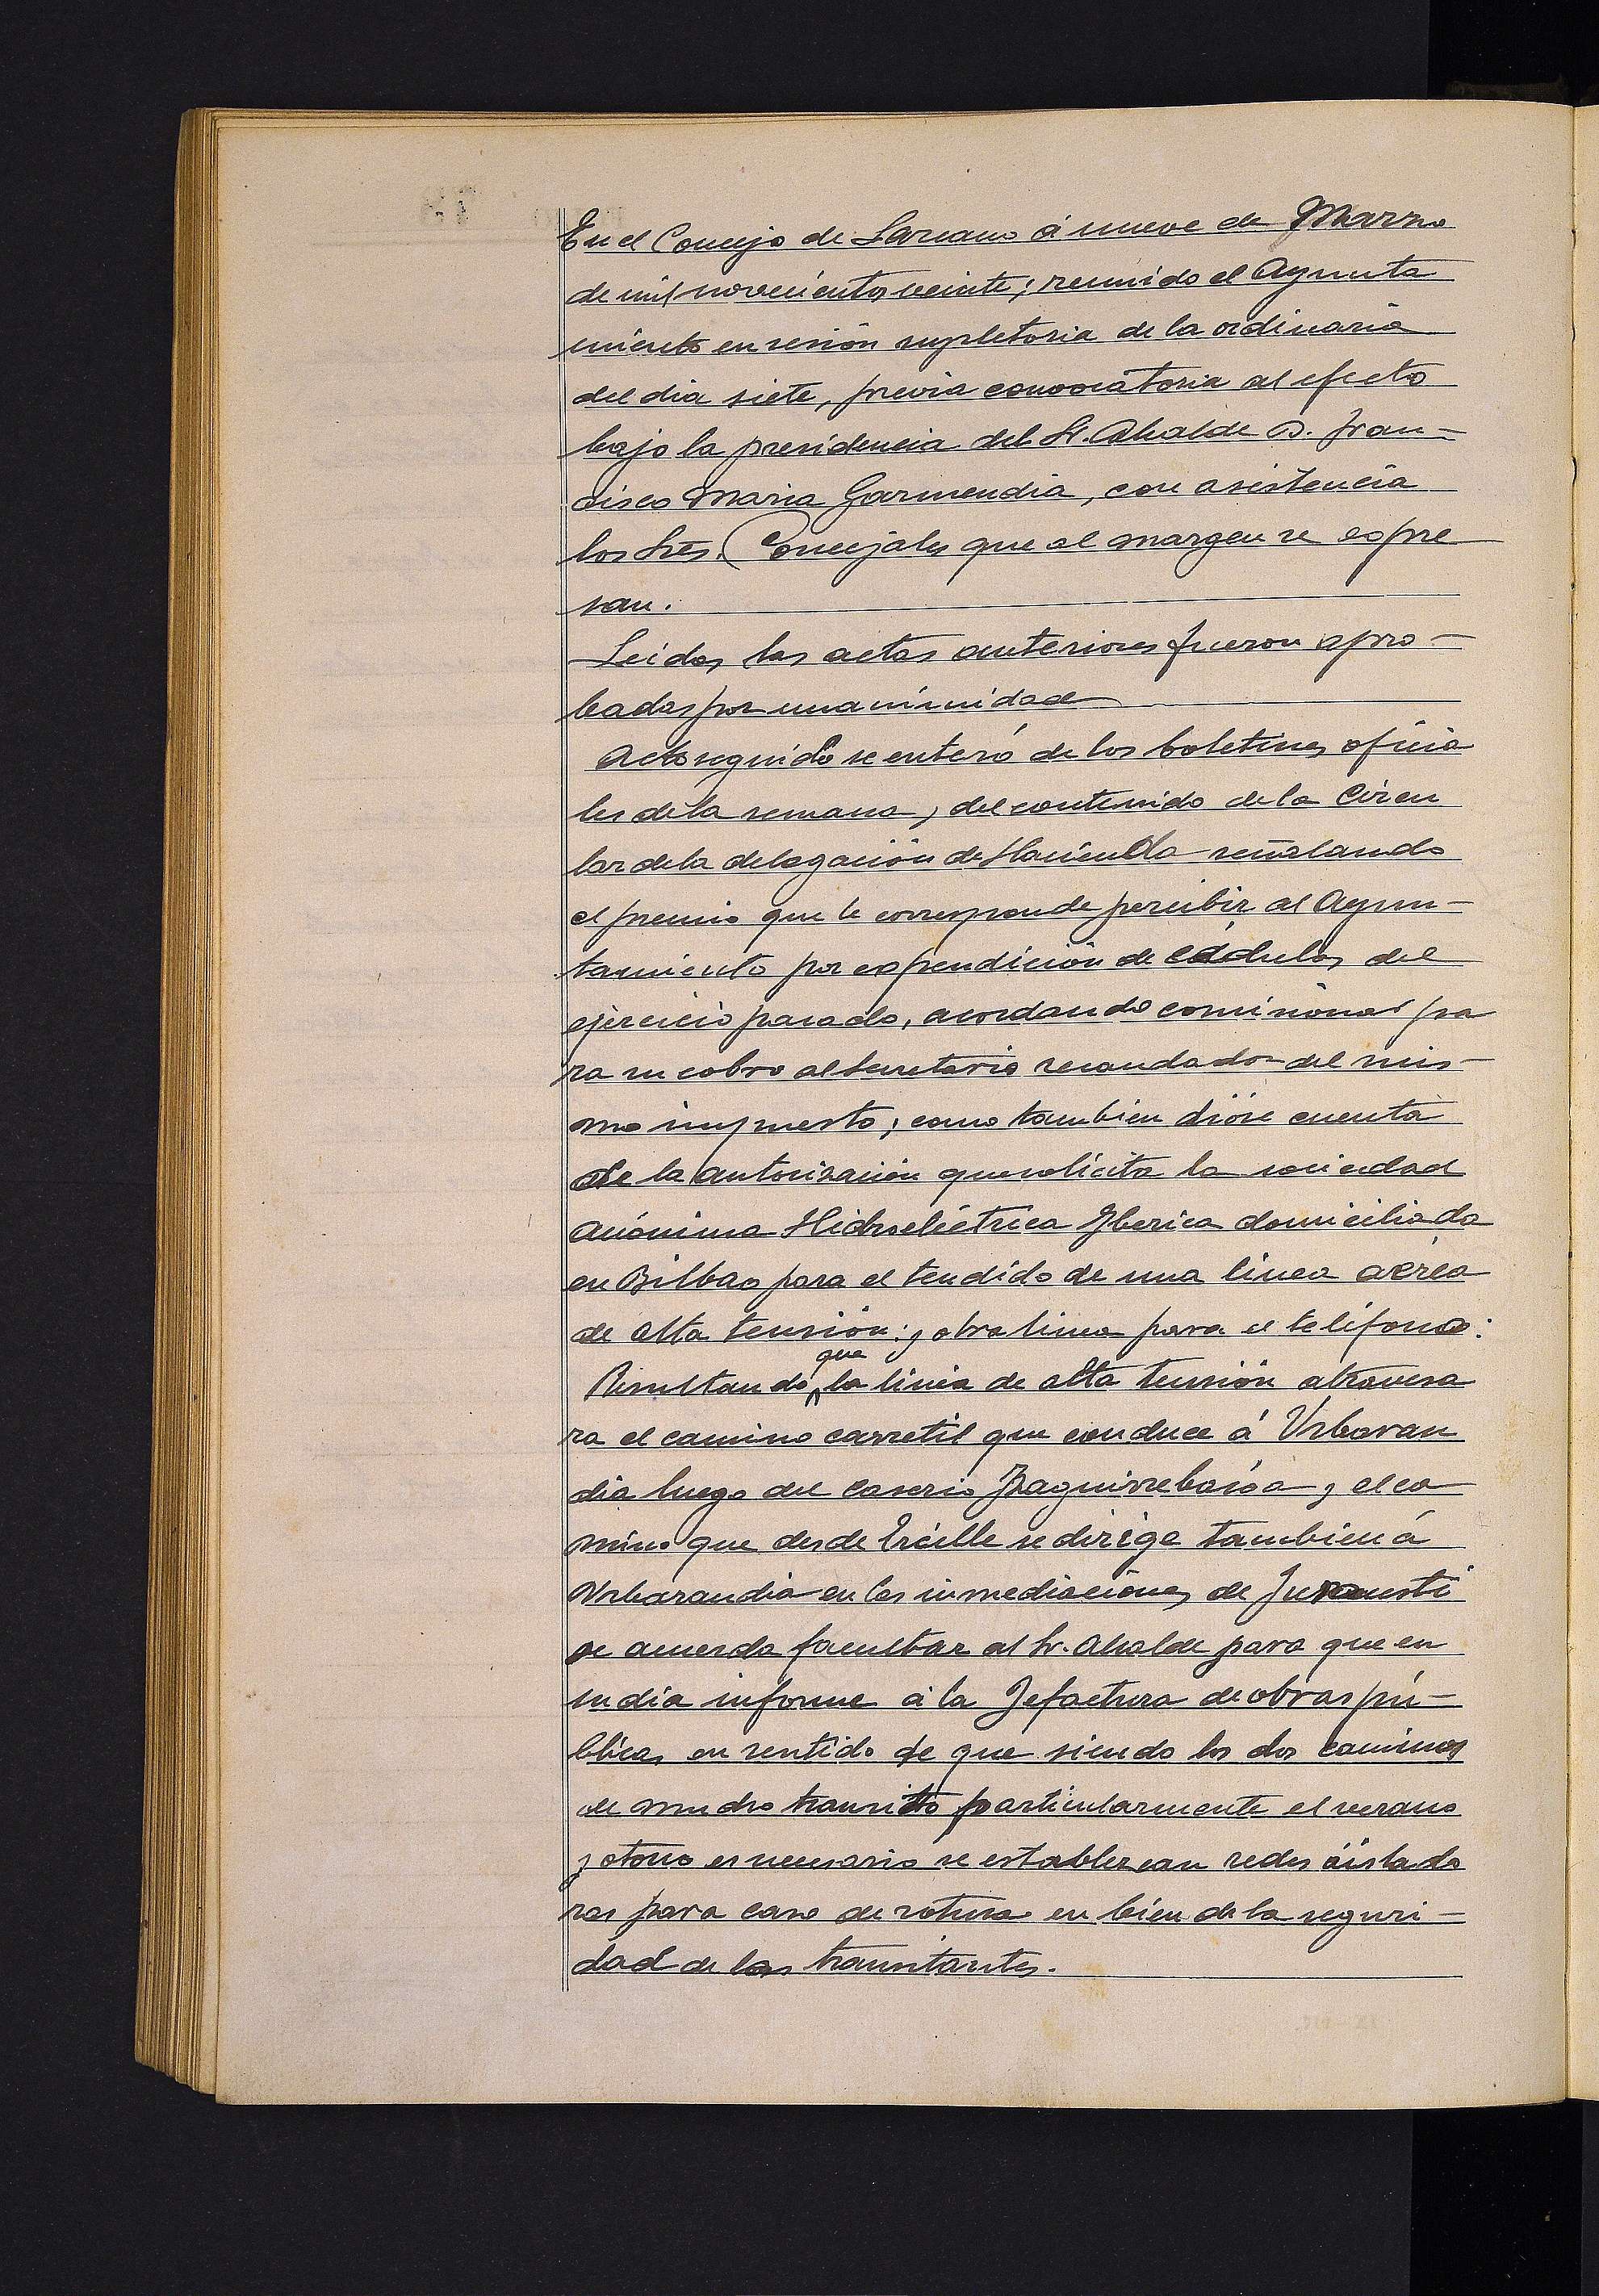 En el Concejo de Lazcano á nueve de Marzo
de mil novecientos veinte; reunido el Ayunta
miento en sesión supletoria de la ordinaria
del dia siete, previa convocatoria al efecto
bajo la presidencia del Sr. Alcalde D. Fran-
cisco Maria Garmendia, con asistencia
los Sres. Concejales que al margen se expre
san.
Leidas las actas anteriores fueron apro-
badas por unanimidad
Acto seguido se enteró de los boletines oficia
les de la semana, del contenido de la Circu
lar de la delegación de Hacienda señalando
el premio que le corresponde percibir al Ayun-
tamiento por expendición de cédulas del
ejercicio pasado, acordando comisionar pa
ra su cobro al Secretario recaudador del mis-
mo impuesto; como tambien dióse cuenta
de la autorización que solicita la sociedad
anónima Hidroeléctrica Yberica domiciliada
en Bilbao para el tendido de una linea aérea
de alta tensión: y otra linea para el teléfono:
Resultando que la linea de alta tensión atravesa
ra el camino carretil que conduce á Urbaran
dia luego del caserio y el ca
mino que desde se dirige tambien á
Urbarandia en las inmediaciones de
se acuerda facultar al Sr. Alcalde para que en
su dia informe á la Jefactura de obras pú-
blicas en sentido de que siendo los dos caminos
de mucho transito particularmente el verano
y otoño es necesario se establezcan redes aislado
ras para caso de rotura en bien de la seguri-
dad de los transitantes.